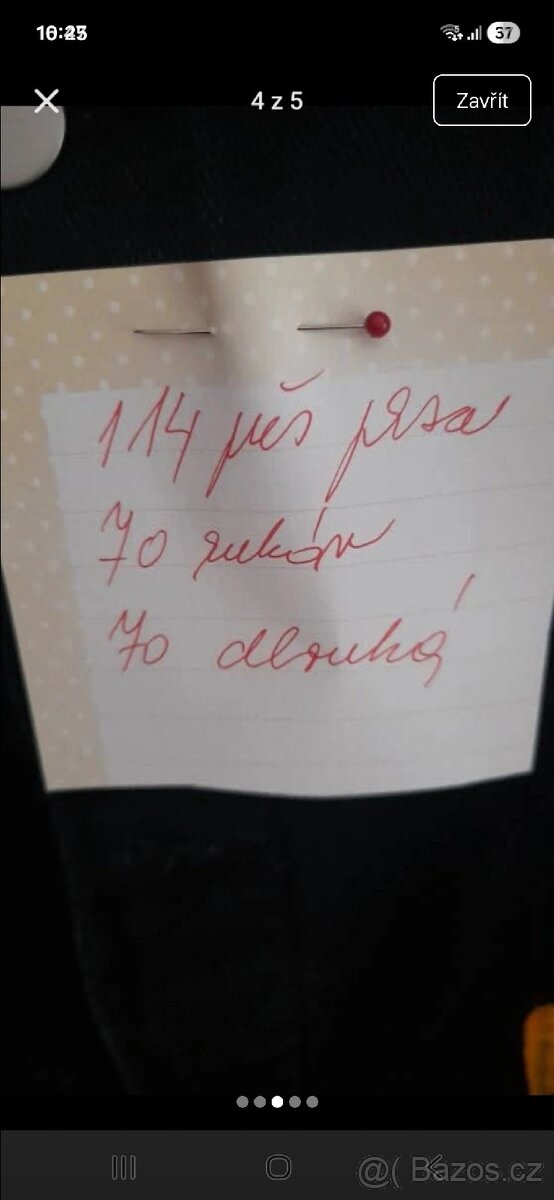 4 z 5
Zavřít
114 přes prsa
70 rukáv
70 dlouhá
@( Bazos.cz